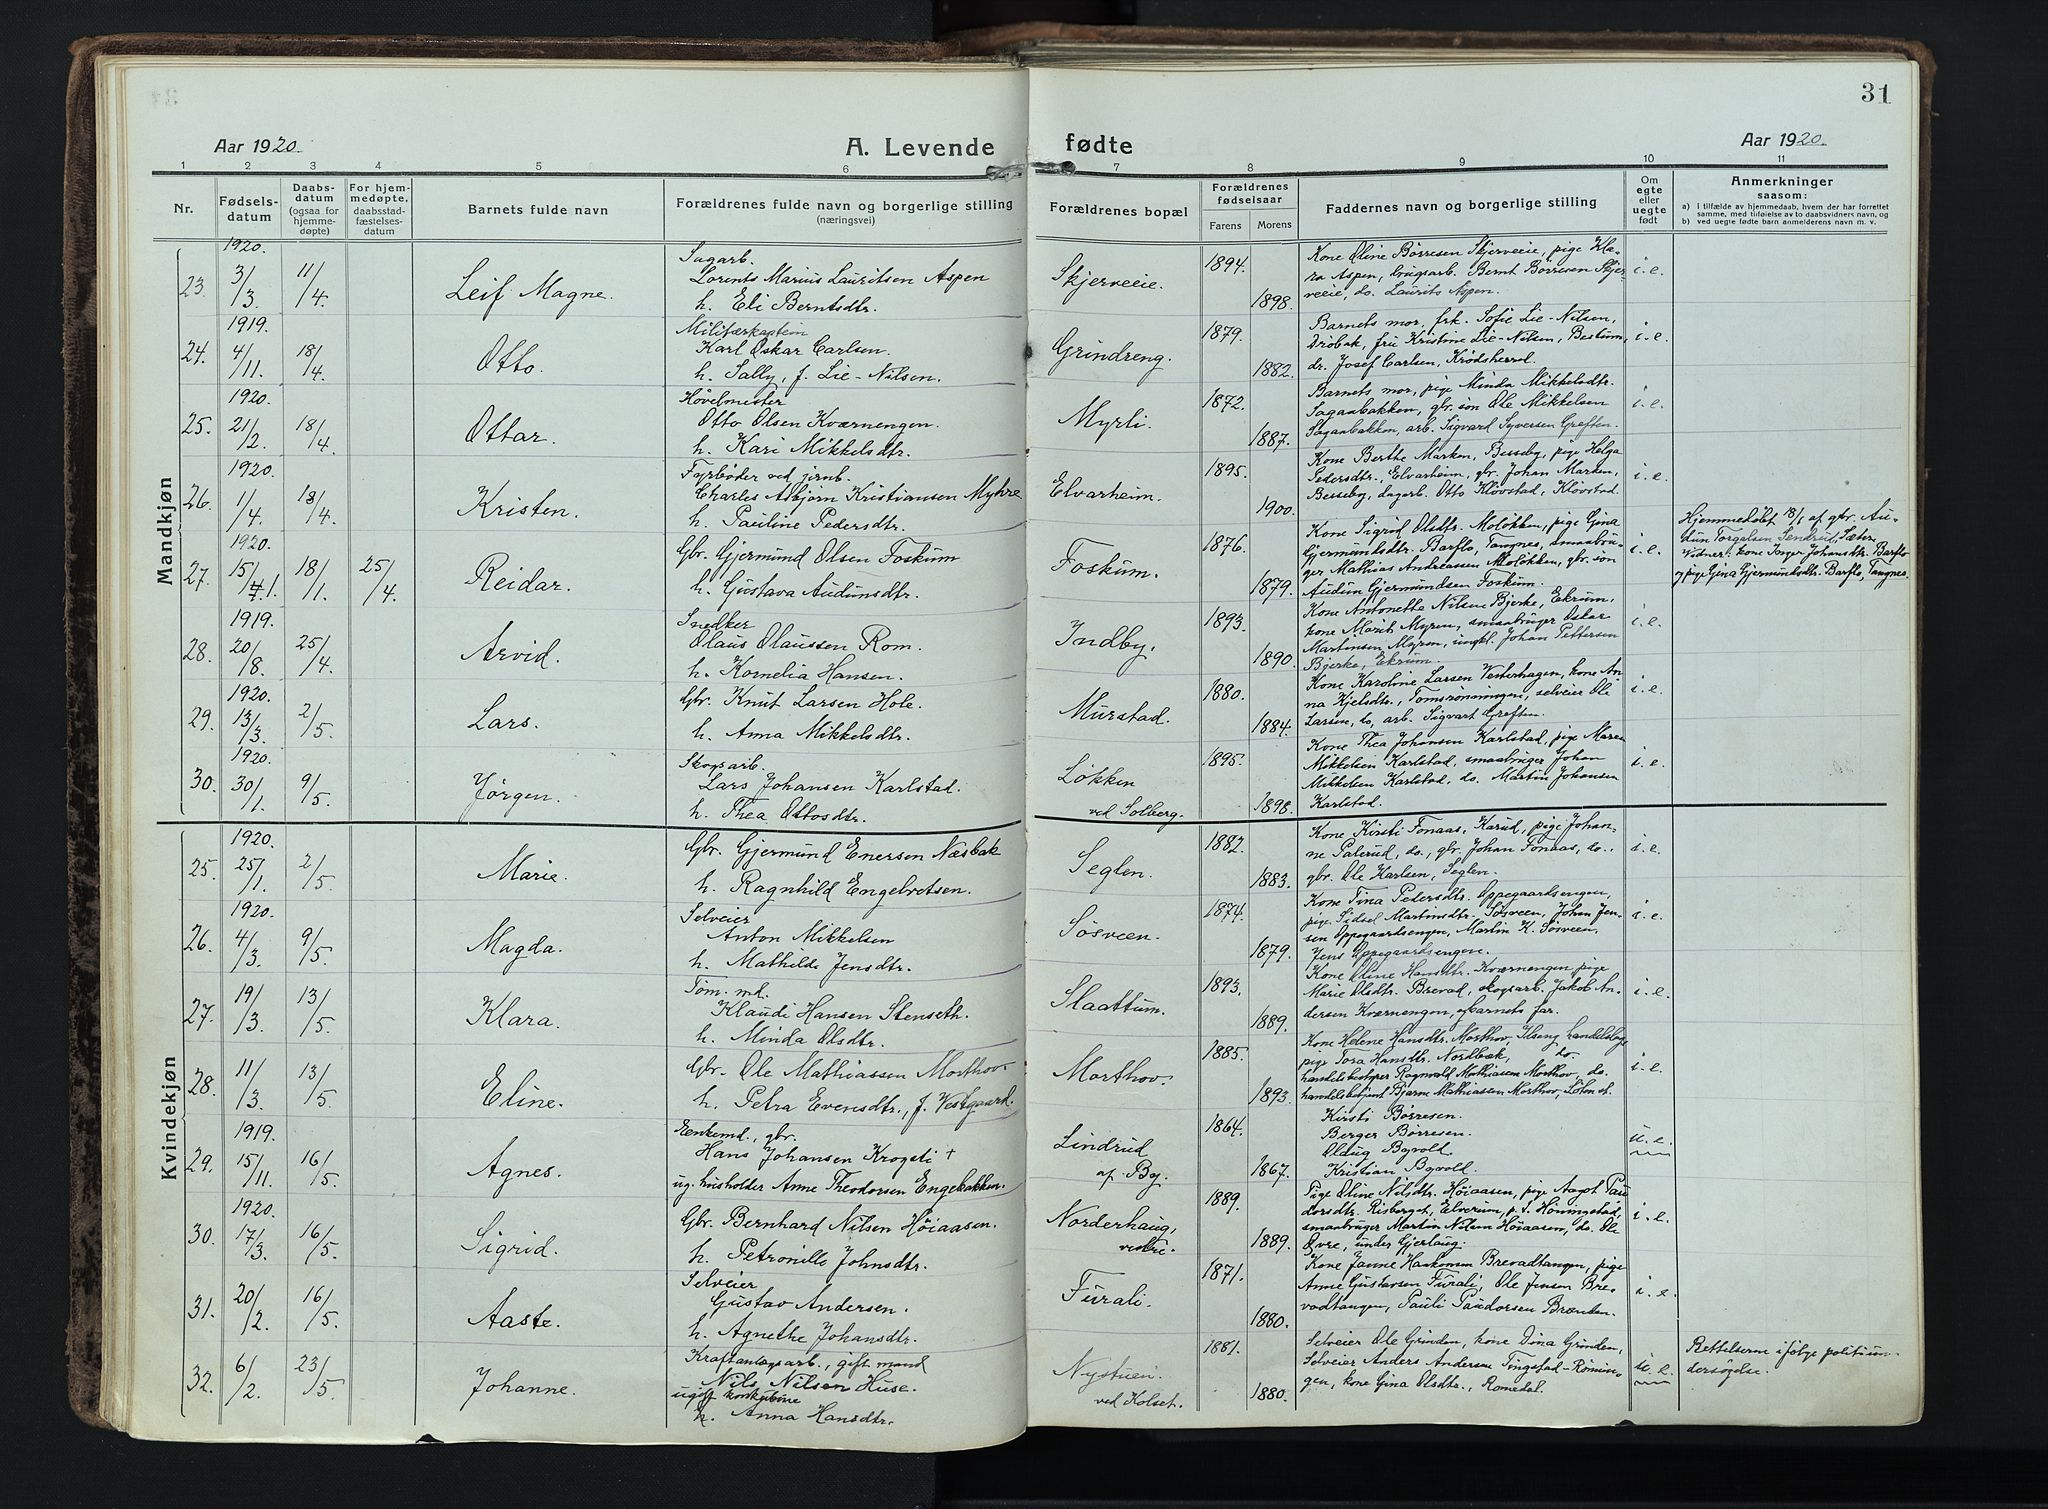 31
Aar 1920.
A. Levende fødte
Aar 1920.
1 2 3 4 5 6 7 8 9 10 11
Nr.
Fødsels-
datum
Daabs-
datum
(ogsaa for
hjemme-
døpte)
For hjem-
medøpte,
daabsstad-
fæstelses-
datum
Barnets fulde navn
Forældrenes fulde navn og borgerlige stilling
(næringsvei)
Forældrenes bopæl
Forældrenes
fødselsaar
Farens Morens
Faddernes navn og borgerlige stilling
Om
egte
eller
uegte
født
Anmerkninger
saasom:
a) i tilfælde av hjemmedaab, hvem der har forrettet
samme, med tilføielse av to daabsvidners navn, og
b) ved uegte fødte barn anmelderens navn m. v.
Mandkjøn
1920.
23. 3/3 11/4 Leif Magne.
Sagarb.
Lorents Marius Lauritsen Aspen
h. Eli Berntsdtr.
Skjerveie.
1894.
1898.
Kone Oline Børresen Skjerveie, pige Kla-
ra Aspen, brugsarb. Bernt Børresen Skjer
veie, do. Laurits Aspen.
i. e.
1919.
24. 4/11. 18/4 Otto.
Militærkaptein
Karl Oskar Carlsen.
h. Sally, f. Lie-Nilsen.
Grindreng.
1879.
1882.
Barnets mor, frk. Sofie Lie-Nilsen,
Drøbak, fru Kristine Lie-Nilsen, Bestum,
dr. Josef Carlsen, Krødsherred.
i. e.
1920.
25. 21/2. 18/4 Ottar.
Høvelmester
Otto Olsen Kværnengen.
h. Kari Mikkelsdtr.
Myrli.
1872.
1887.
Barnets mor, pige Minda Mikkelsdtr.
Saganbakken, gbr. søn Ole Mikkelsen
Saganbakken, arb. Sigvard Syversen Greften.
i. e.
1920.
26. 1/4. 18/4. Kristen.
Fyrbøder ved jernb.
Charles Asbjørn Kristiansen Myhre
h. Pauline Pedersdtr.
Elvarheim.
1895.
1900.
Kone Berthe Marken, Besseby, pige Helga
Pedersdtr., Elvarheim, gbr. Johan Marken,
Besseby, dagarb. Otto Kløvstad, Kløvstad.
i. e.
1920.
27. 15/1. 18/1. 25/4 Reidar.
Gbr. Gjermund Olsen Foskum
h. Gustava Audunsdtr.
Foskum.
1876.
1879.
Kone Sigrid Olsdtr. Moløkken, pige Gina
Gjermundsdtr. Barflo, Tangnes, smaabru-
ger Mathias Andreassen Moløkken, gbr. søn
Audun Gjermundsen Foskum.
i. e.
Hjemmedøbt 18/1 af gbr. Au-
dun Torgalsen Sendrud, Sæter.
Vidner: kone Inger Johansdtr. Barflo
og pige Gina Gjermundsdtr. Barflo, Tangnes.
1919.
28. 20/8. 25/4 Arvid.
Snedker
Olaus Olaussen Rom.
h. Kornelia Hansen.
Indby.
1893.
1890.
Kone Antonette Nilsen Bjerke, Ekrum,
kone Marit Myren, smaabruger Oskar
Martinsen Myren, ungkl. Johan Pettersen
Bjerke, Ekrum.
i. e.
1920.
29. 13/3. 2/5. Lars.
Gbr. Knut Larsen Hole.
h. Anna Mikkelsdtr.
Murstad.
1880.
1884.
Kone Karoline Larsen Vesterhagen, kone An
na Kjelsdtr., Tomsrønningen, selveier Ole
Larsen, do, arb. Sigvart Greften.
i. e.
1920.
30. 30/1. 9/5. Jørgen.
Skogsarb.
Lars Johansen Karlstad.
h. Thea Ottosdtr.
Løkken
ved Solberg.
1895.
1898.
Kone Thea Johansen Karlstad, pige Maren
Mikkelsen Karlstad, smaabruger Johan
Mikkelsen Karlstad, do. Martin Johansen
Karlstad.
i. e.
Kvindekjøn
1920.
25. 25/1. 2/5. Marie.
Gbr. Gjermund Enersen Næsbak
h. Ragnhild Engebretsen.
Seglen.
1882.
1883.
Kone Kirsti Fonaas, Karud, pige Johan-
ne Palerud, do., gbr. Johan Fonaas, do.,
gbr. Ole Karlsen, Seglen.
i. e.
1920.
26. 4/3. 9/5. Magda.
Selveier
Anton Mikkelsen
h. Mathilde Jensdtr.
Søsveen.
1874.
1879.
Kone Tina Pedersdtr. Oppegaardsengen,
pige Sidsel Martinsdtr. Søsveen, Johan Jen-
sen Oppegaardsengen, Martin K. Søsveen,
Jens Oppegaardsengen.
i. e.
27. 19/3. 13/5. Klara.
Tøm. md.
Klaudi Hansen Stenseth.
h. Minda Olsdtr.
Slaattum.
1893.
1889.
Kone Oline Hansdtr. Kværnengen pige
Marie Olsdtr. Brevad, skogsarb. Jakob An-
dersen Kværnengen, og barnets far.
i. e.
28. 11/3. 13/5. Eline.
Gbr. Ole Mathiassen Morthov.
h. Petra Evensdtr., f. Vestgaard.
Morthov.
1885.
1893.
Kone Helene Hansdtr. Morthov, Ilseng handelslage
pige Tora Hansdtr. Nordbæk, do.
handelsbestyrer Ragnvald Mathiasen Morthov, do.
handelsbetjent Bjarne Mathiassen Morthov, Løten st.
i. e.
1919.
29. 15/11. 16/5. Agnes.
Enkemd., gbr.
Hans Johansen Krogsti +
ug. husholder Anne Theodorsen Engebakken.
Lindrud
af By.
1864.
1867.
Kirsti Børresen.
Berger Børresen.
Oldug Byvold.
Kristian Byvold.
u. e.
1920.
30. 17/3. 16/5. Sigrid.
Gbr. Bernhard Nilsen Høiaasen.
h. Petronille Johnsdtr.
Norderhaug,
vestre.
1889.
1889.
Pige Oline Nilsdtr. Høiaasen, pige Aagot Pau
dorsdtr. Risberget, Elverum, p. t. Hommerstad,
smaabruger Martin Nilsen Høiaasen, do. Ole
Øvre, under Gjerlaug.
i. e.
31. 20/2. 16/5. Aaste.
Selveier
Gustav Andersen.
h. Agnethe Johansdtr.
Furali.
1871.
1880.
Kone Janne Haakonsen Brevadtangen, pige
Anne Gustavsen Furali, Ole Jensen Bre-
vadtangen, Pauli Paudorsen Brænden.
i. e.
32. 6/2. 23/5. Johanne.
Kraftanlægsarb., gift mand
Nils Nilsen Huse.
ugift konkubine
h. Anna Hansdtr.
Nystuen.
ved Kolset.
1881.
1880.
Selveier Ole Grinden, kone Dina Grinden,
Selveier Anders Andersen Tingstad-Rømin-
gen, kone Gina Olsdtr., Romedal.
u. e.
Rettelserne ifølge politiun-
dersøgelse.